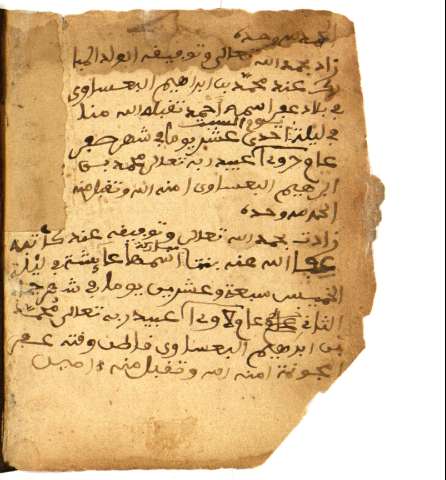 الحمد لله وحده
زاد بحمد الله تعالى وتوفيقه الولد المبا
رك عند محمد بن ابراهيم البعساوى
في بلاد اسمه احمد تقبله الله منه
يوم السبت
في ليلة احدى عشر يوما في شهر صفر
عام عبيد ربه تعالى محمد بن
ابراهيم البعساوى امنه الله وتقبل منه
الحمد لله وحده
زادت بحمد الله تعالى وتوفيقه عند كاتبه
عفا الله عنه بنتا اسمها عايشة في ليلة
الخميس سبعة وعشرين يوما في شهر جمادى
الثاني عام عبيد ربه تعالى محمد
بن ابراهيم البعساوى وفته
امنه الله وتقبل منه ءامين